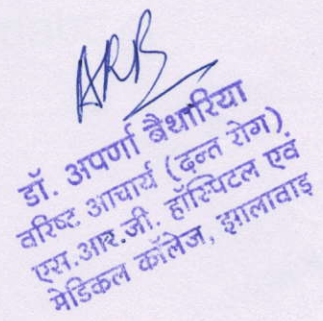 ARB
डॉ. अपर्णा बैथारिया
वरिष्ट आचार्य (दन्त रोग)
एस.आर.जी. हॉस्पिटल एवं
मेडिकल कॉलेज, झालावाड़